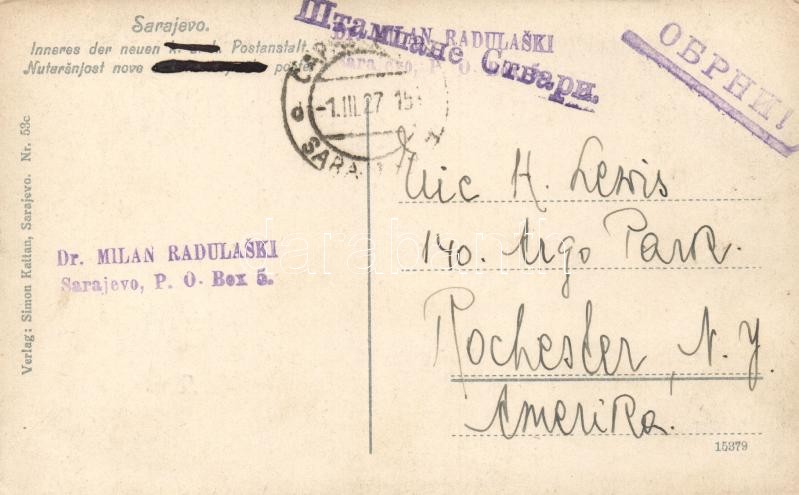 Sarajevo.
Inneres der neuen k. u. k. Postanstalt.
Nutaršnjost nove pošte
Штампане Ствари.
Dr. MILAN RADULAŠKI
Sarajevo, P. O. Box 5.
ОБРНИ!
-1.III.27 15
SARAJEVO
Dr. MILAN RADULAŠKI
Sarajevo, P. O. Box 5.
H. Lewis
140. Argo Park.
Rochester, N. Y.
Amerika.
Verlag: Simon Kattan, Sarajevo. Nr. 53c
15379
darabanth